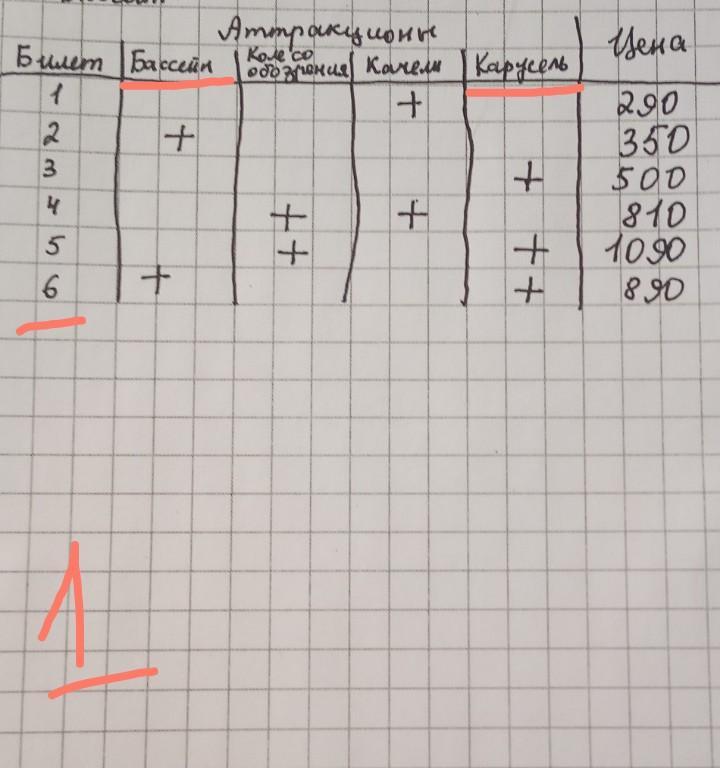 Аттракционы
Билет Бассейн Колесо обозрения Качели Карусель Цена
1 + 290
2 + 350
3 + 500
4 + + 810
5 + + 1090
6 + + 890
1